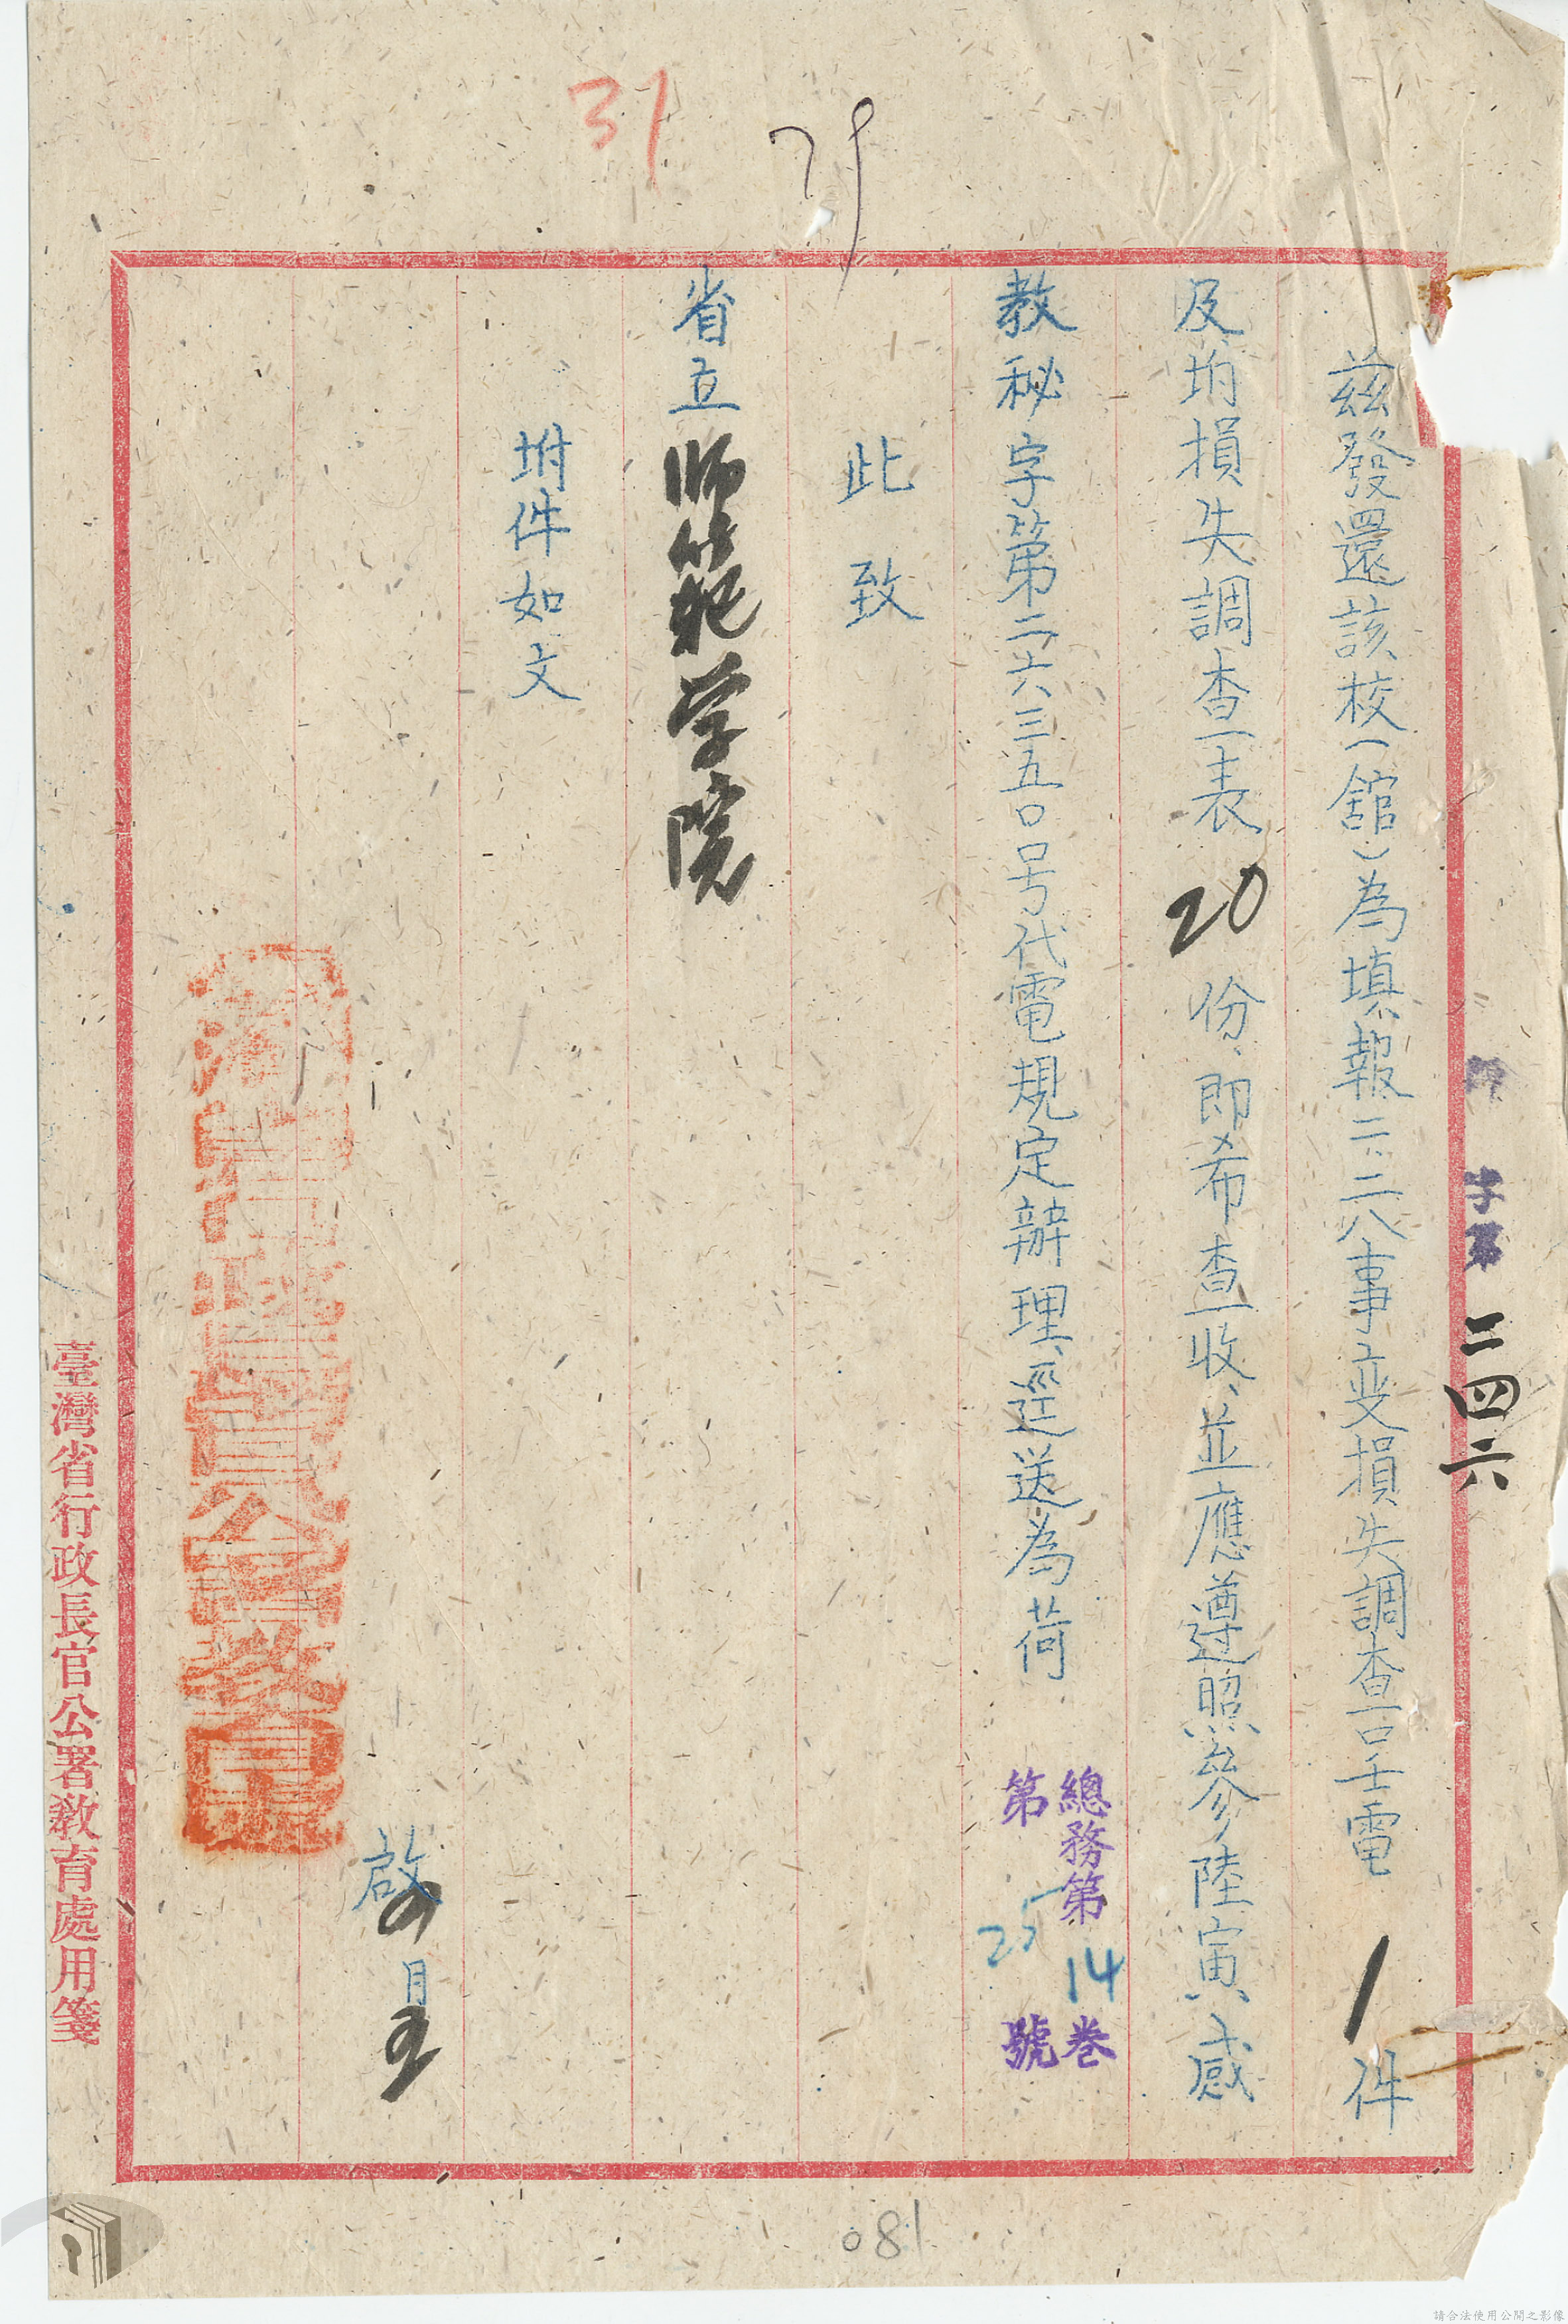 31
字第二四六
茲發還該校(舘)為填報二、二八事变損失調查呈電1件
及坿損失調查表20份、即希查收、並應遵照參陸寅感
教秘字第二六三五〇号代電規定辦理、逕送為荷
總務第14卷
第25號
此致
省立师範学院
坿件如文
啟
月
臺灣省行政長官公署教育處用箋
081
請合法使用公開之影像